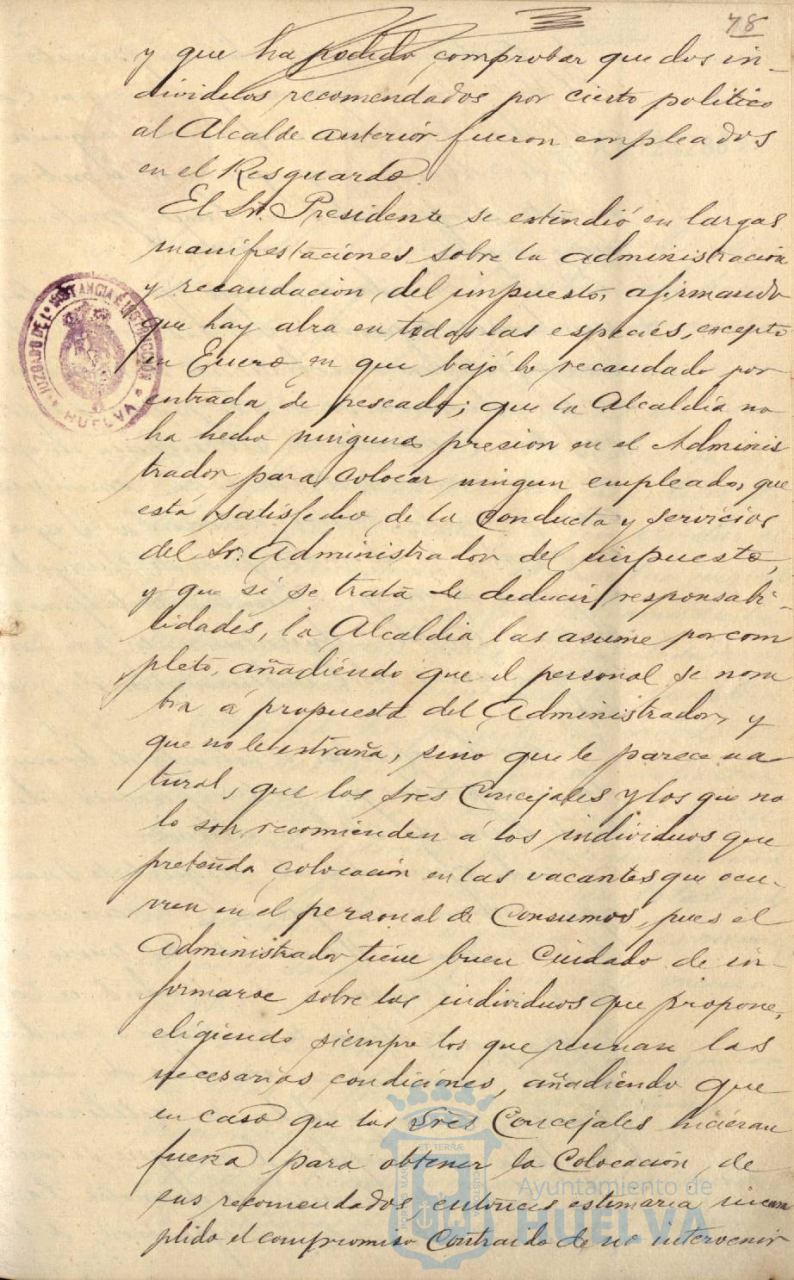 78
y que ha podido comprobar que dos in-
dividuos recomendados por cierto politico
al Alcalde anterior fueron empleados
en el Resguardo.
El Sr. Presidente se extendió en largas
manifestaciones sobre la administración
y recaudacion del impuesto, afirmando
que hay alza en todas las especies, excepto
en Enero en que bajó lo recaudado por
entrada de pescado; que la Alcaldía no
ha hecho ninguna presion en el Adminis
trador para colocar ningun empleado, que
está satisfecho de la conducta y servicios
del Sr. Administrador del impuesto,
y que si se trata de deducir responsabi-
lidades, la Alcaldia las asume por com
pleto, añadiendo que el personal se nom
bra á propuesta del Administrador, y
que no le extraña, sino que le parece na
tural, que los Sres Concejales y los que no
lo son recomienden á los individuos que
pretenda colocación en las vacantes que ocu-
rren en el personal de Consumos, pues el
Administrador tiene buen cuidado de in-
formarse sobre los individuos que propone,
eligiendo siempre los que reunan las
necesarias condiciones, añadiendo que
en caso que los Sres Concejales hicieran
fuerza para obtener la colocación de
sus recomendados entonces estimaria incum
plido el compromiso contraido de no intervenir
JUZGADO DE 1ª INSTANCIA É INSTRUCCION
HUELVA
Ayuntamiento de
HUELVA